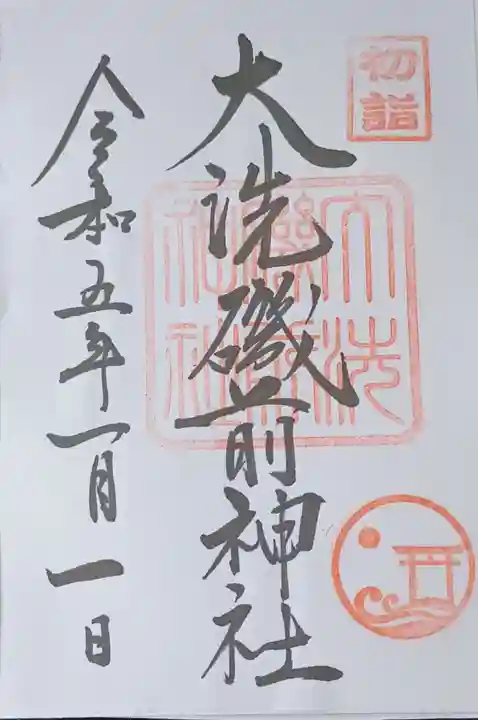 初詣
大洗磯前神社
大洗磯前神社
令和五年一月一日